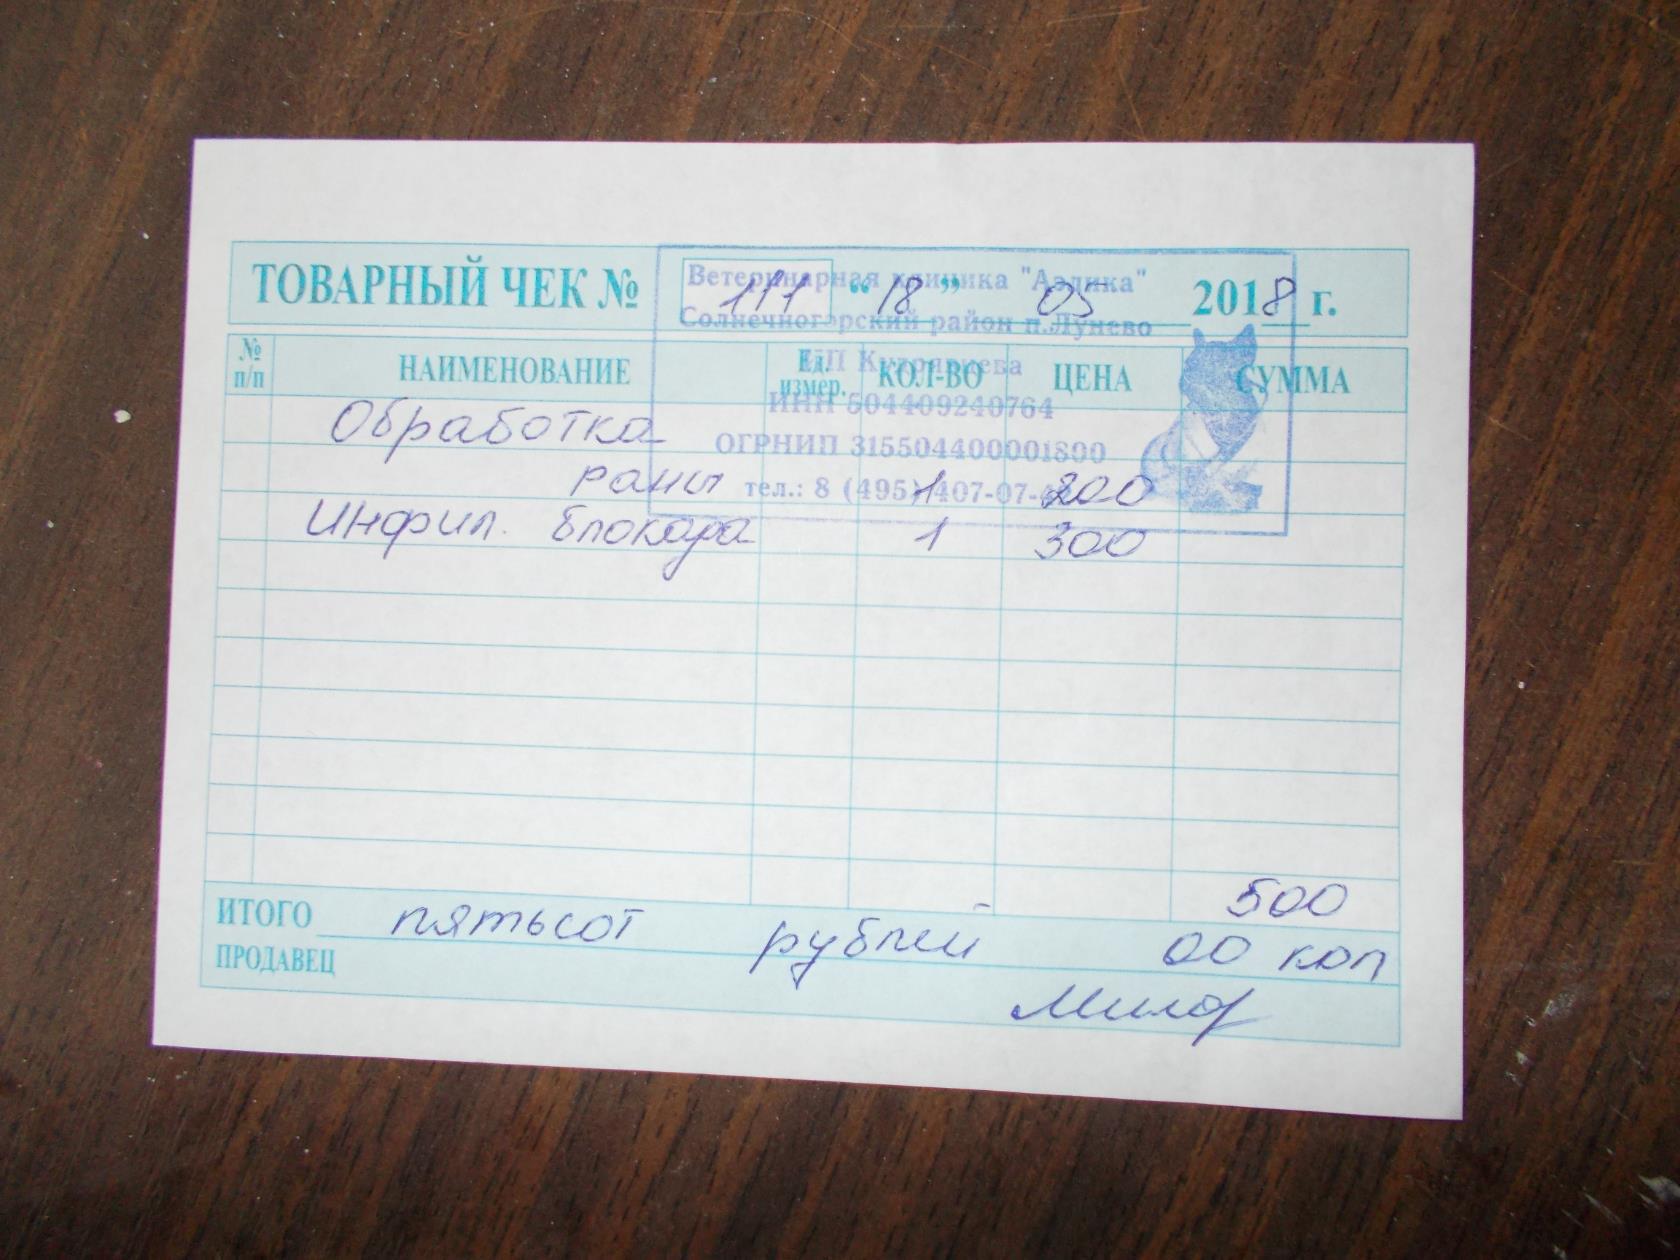 ТОВАРНЫЙ ЧЕК № 111 “18” 05 2018 г.
Ветеринарная клиника "Аэлика"
Солнечногорский район п.Лунево
ИП Кудрявцева
ИНН 504409240764
ОГРНИП 315504400001800
тел.: 8 (495) 407-07-
№ п/п НАИМЕНОВАНИЕ Ед. измер. КОЛ-ВО ЦЕНА СУММА
Обработка
раны 1 200
Инфил. блокада 1 300
500
ИТОГО пятьсот рублей 00 коп
ПРОДАВЕЦ